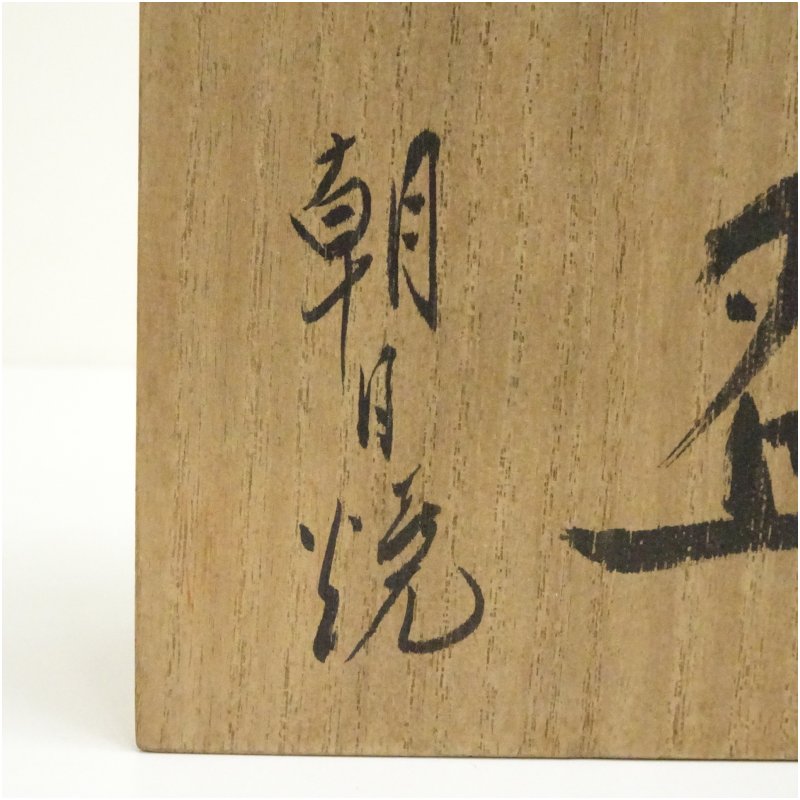 朝日焼